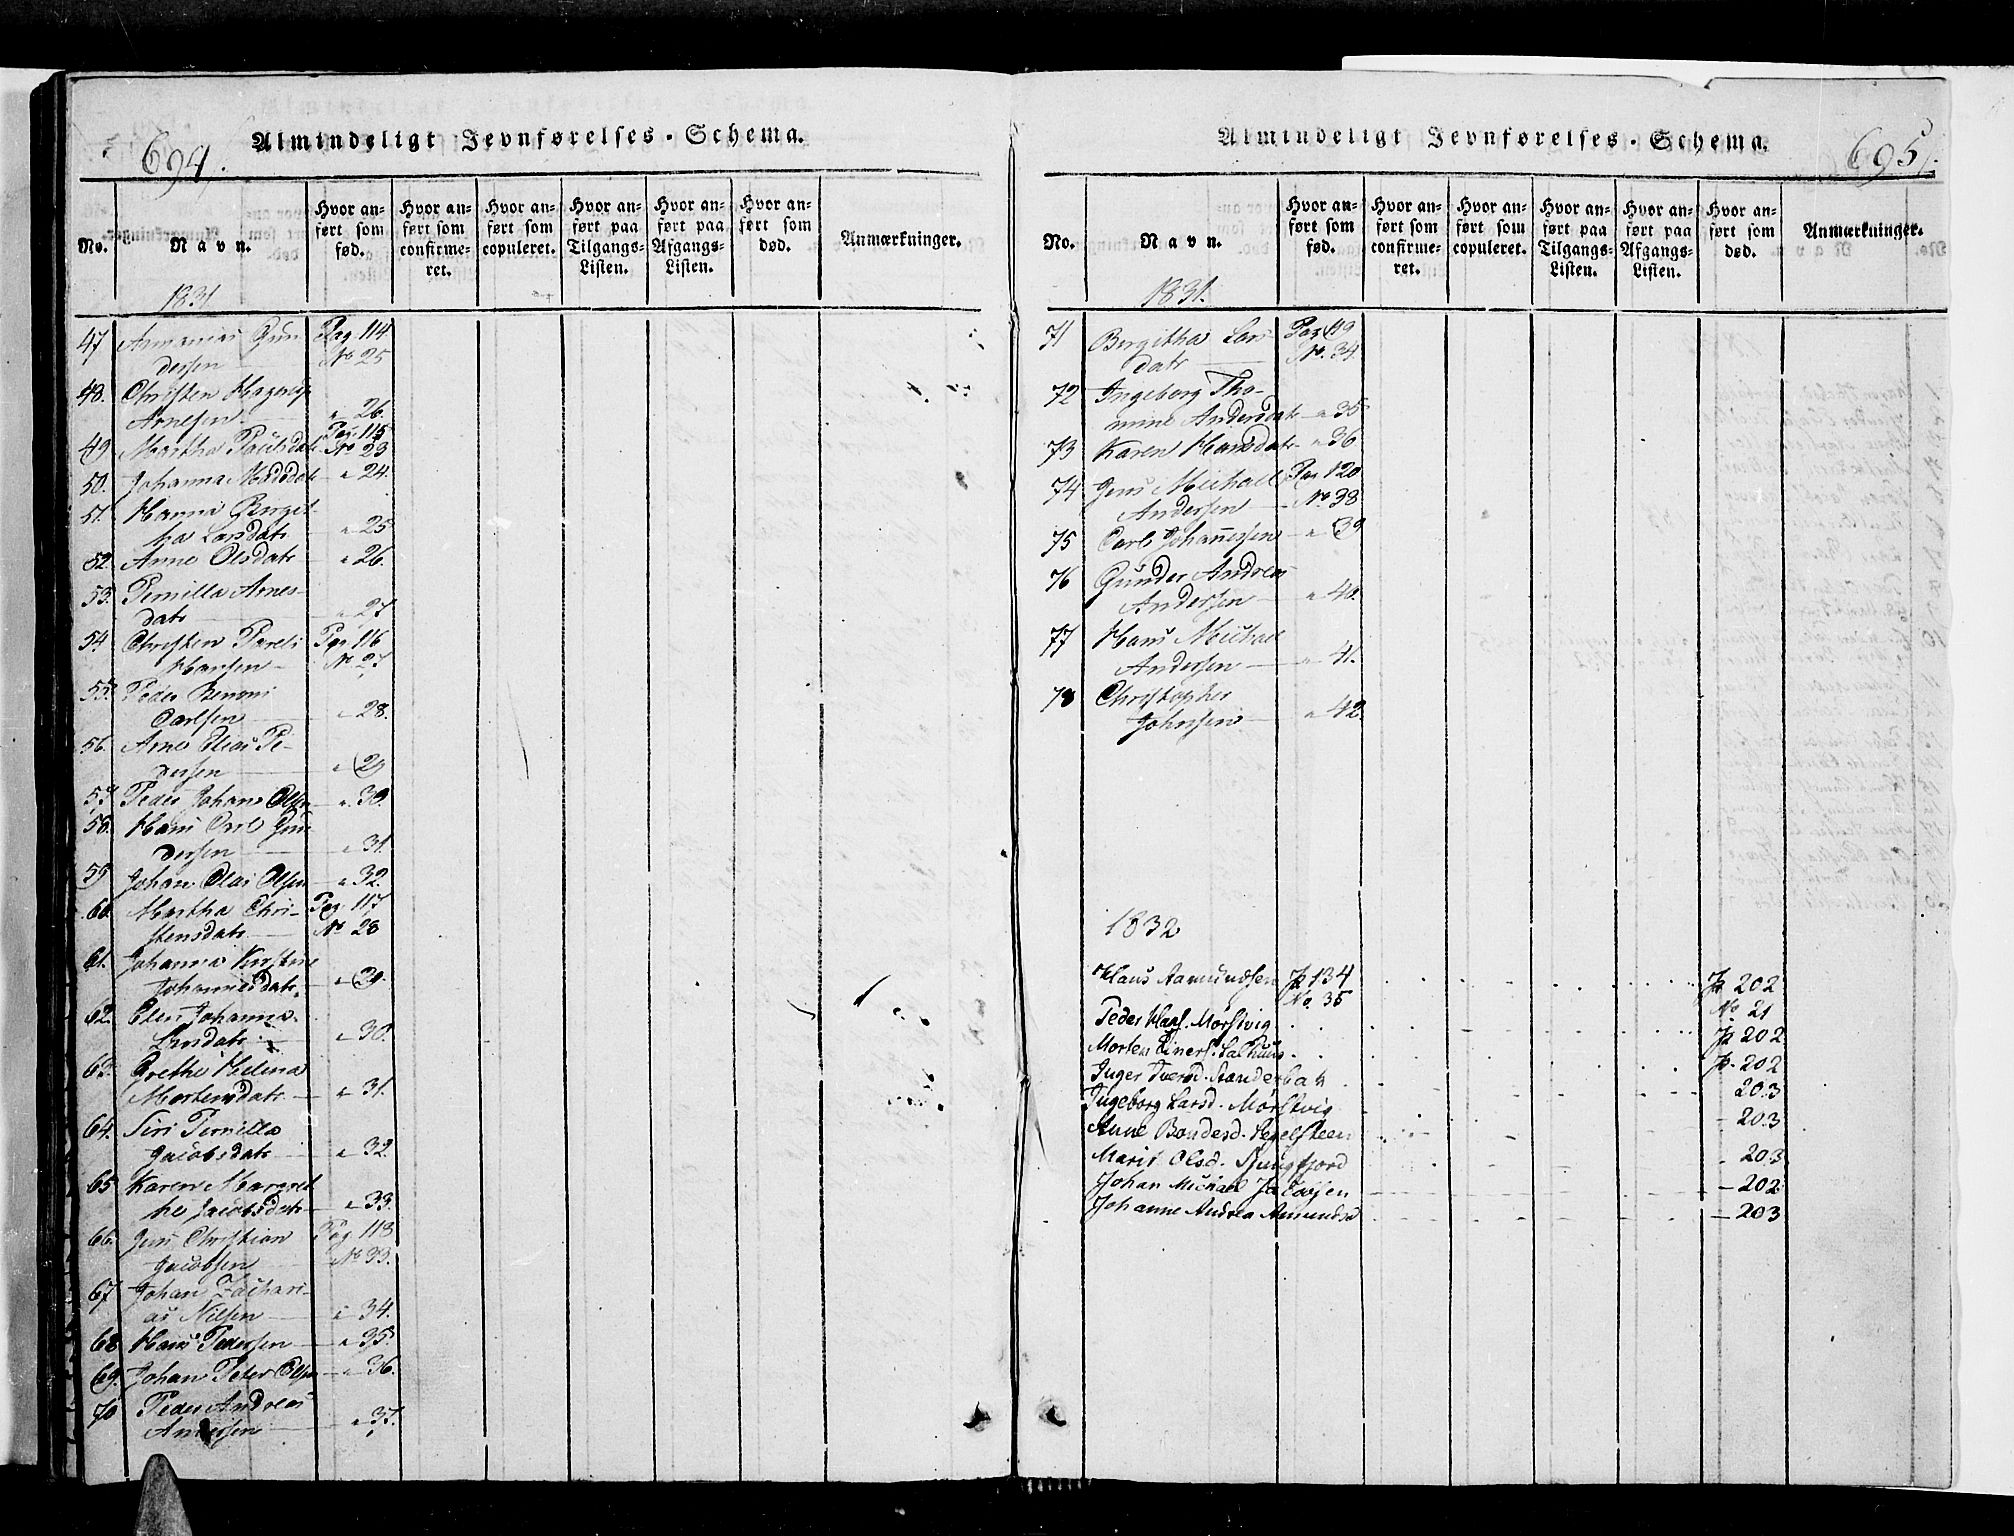 694.
Almindeligt Jevnførelses-Schema.
No.
Navn.
Hvor anført som fød.
Hvor anført som confirmeret.
Hvor anført som copuleret.
Hvor anført paa Tilgangs-Listen.
Hvor anført paa Afgangs-Listen.
Hvor anført som død.
Anmærkninger.
1831
47 Ammanias Gun Pag. 114
dersen No 25
48. Christen
Arnesen " 26.
Pag. 115
49 Martha Paulsdatr No 23
50. Johanna Madsdatr " 24.
51. Hanna Berget
ha Larsdatr " 25
52. Anne Olsdatr " 26.
53. Pernilla Arnes-
datr " 27
54 Christen Pareli Pag 116
Hansen No 27
55. Peder Benoni
Carlsen " 28.
56. Arne Elias Pe-
dersen " 29
57. Peder Johan Olsen " 30.
58. Hans Carl Gun
dersen " 31.
59 Johan Olai Olsen " 32.
60. Martha Chri- Pag. 117
stensdatr No 28
61. Johanna Kirstine
Johannesdatr " 29.
62. Elen Johanna
Larsdatr " 30.
63. Grethe Helena
Mortensdatr " 31.
64. Siri Pernilla
Jacobsdatr " 32
65 Karen Margret
he Jacobsdatr " 33.
66. Jens Christian Pag 118
Jacobsen No 33.
67 Johan Zachari-
as Nilsen " 34.
68 Hans Pedersen " 35.
69. Johan Peter Olsen " 36.
70 Peder Andreas
Andersen " 37.
Almindeligt Jevnførelses-Schema.
695.
No.
Navn.
Hvor anført som fød.
Hvor anført som confirmeret.
Hvor anført som copuleret.
Hvor anført paa Tilgangs-Listen.
Hvor anført paa Afgangs-Listen.
Hvor anført som død.
Anmærkninger.
1831.
71 Bergitha Lars Pag 119
datr No. 34
72 Ingeborg Tho-
mine Andersdatr " 35
73 Karen Hansdatr " 36
74 Jens Michael Pag 120
Andersen No 38
75 Carl Johannesen " 39
76 Gunder Andreas
Andersen " 40.
77 Hans Michael
Andersen " 41.
78 Christopher
Johnsen " 42.
1832
Klaus Aamundsen p 134 p 202
No. 35 No 21
Peder Hans. Morstvig p 202
Morten Einers. Salhuus p. 202
Inger Iversd. 203
Ingeborg Larsd. Morstvig - 203
Anne Bondesd. Hegelsteen
Marit Olsd. - 203
Johan Michael Jacobsen - 202
Johanne Andrea Amundsd - 203